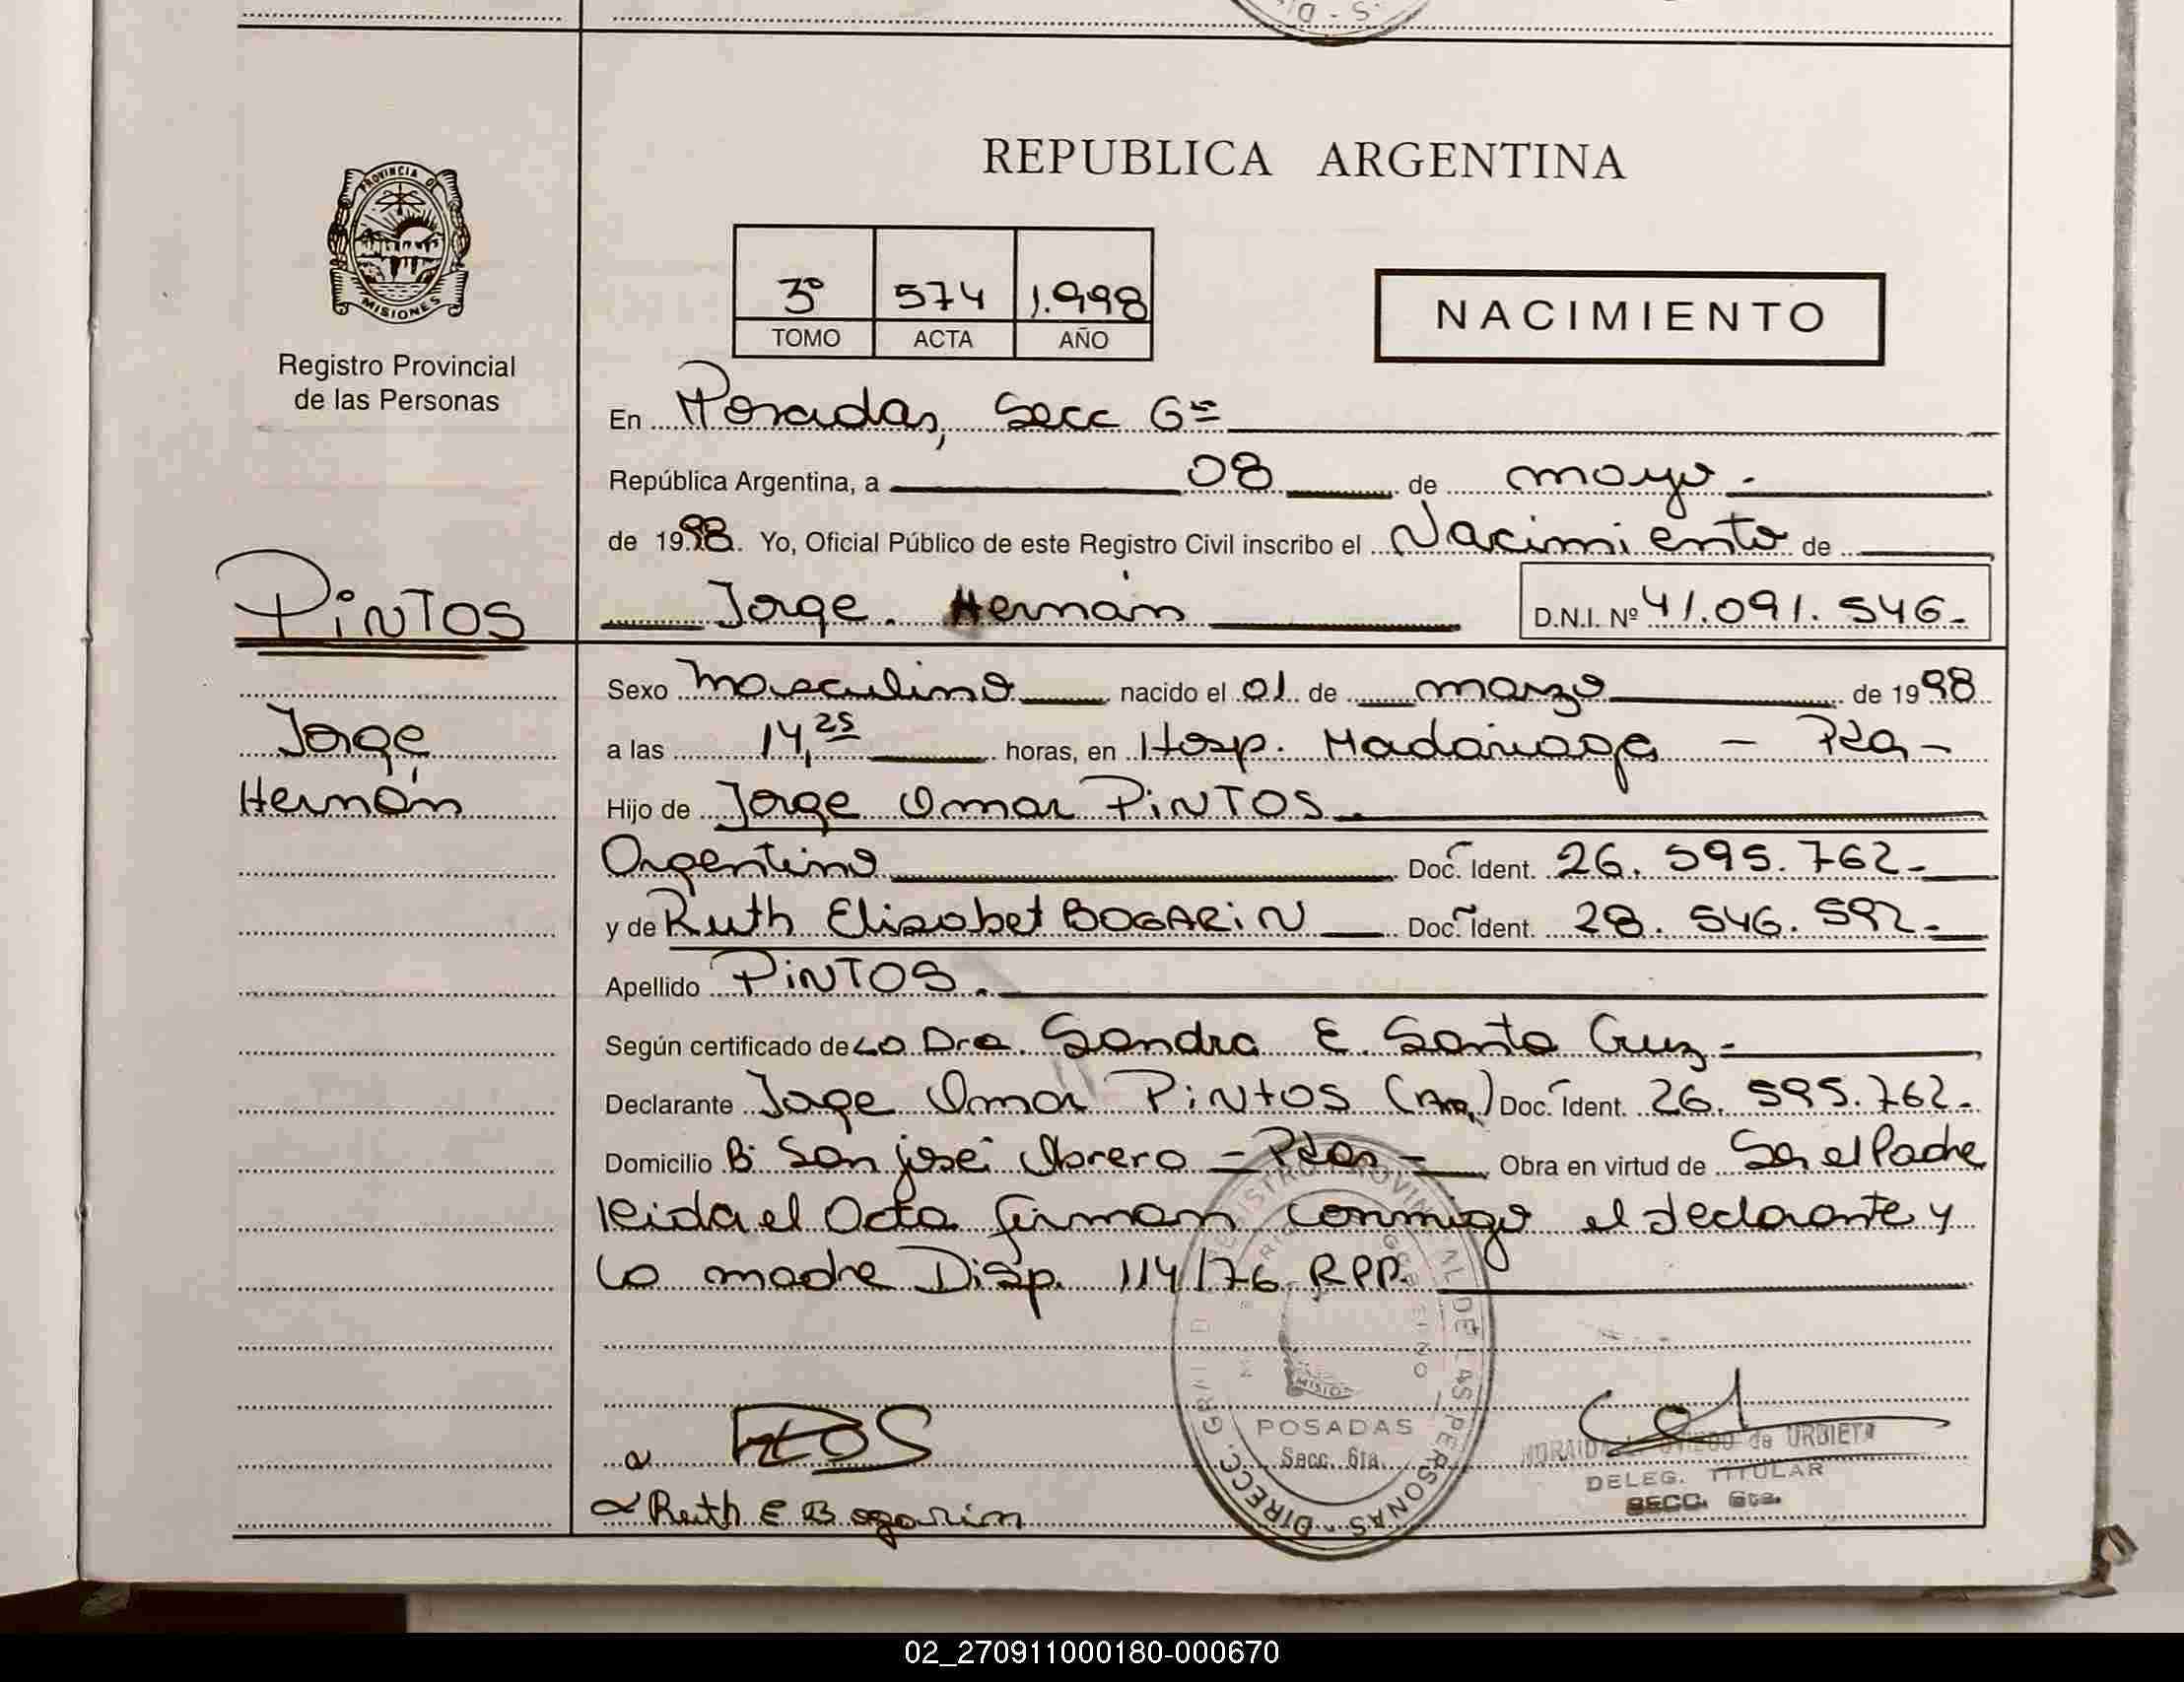 REPUBLICA ARGENTINA
PROVINCIA DE
MISIONES
Registro Provincial
de las Personas
3° 574 1.998
TOMO ACTA AÑO
NACIMIENTO
En Posadas, Secc 6ª
República Argentina, a 08 de mayo.
de 1998. Yo, Oficial Público de este Registro Civil inscribo el Nacimiento de
PINTOS
Jorge. Hernán
D.N.I. Nº 41.091.546.-
Sexo Masculino nacido el 01 de marzo de 1998
Jorge
a las 14,25 horas, en Hosp. Madariaga - Pdas -
Hernán
Hijo de Jorge Omar PINTOS.
Argentino Doc. Ident. 26.595.762.-
y de Ruth Elisabet BOGARIN Doc. Ident. 28.546.592.-
Apellido PINTOS.
Según certificado de La Dra. Sandra E. Santa Cruz.-
Declarante Jorge Omar Pintos (Arg.) Doc. Ident. 26.595.762.-
Domicilio Bº San José Obrero - Pdas - Obra en virtud de Ser el Padre
leida el Acta firman conmigo el declarante y
la madre Disp. 114/76 R.P.P.
DIRECC. GRAL DE REGISTRO PROVINCIAL DE LAS PERSONAS
MISIONES
POSADAS
Secc. 6ta.
OVIEDO de URBIETA
DELEG. TITULAR
SECC. 6ta.
Ruth E Bogarin
02_270911000180-000670